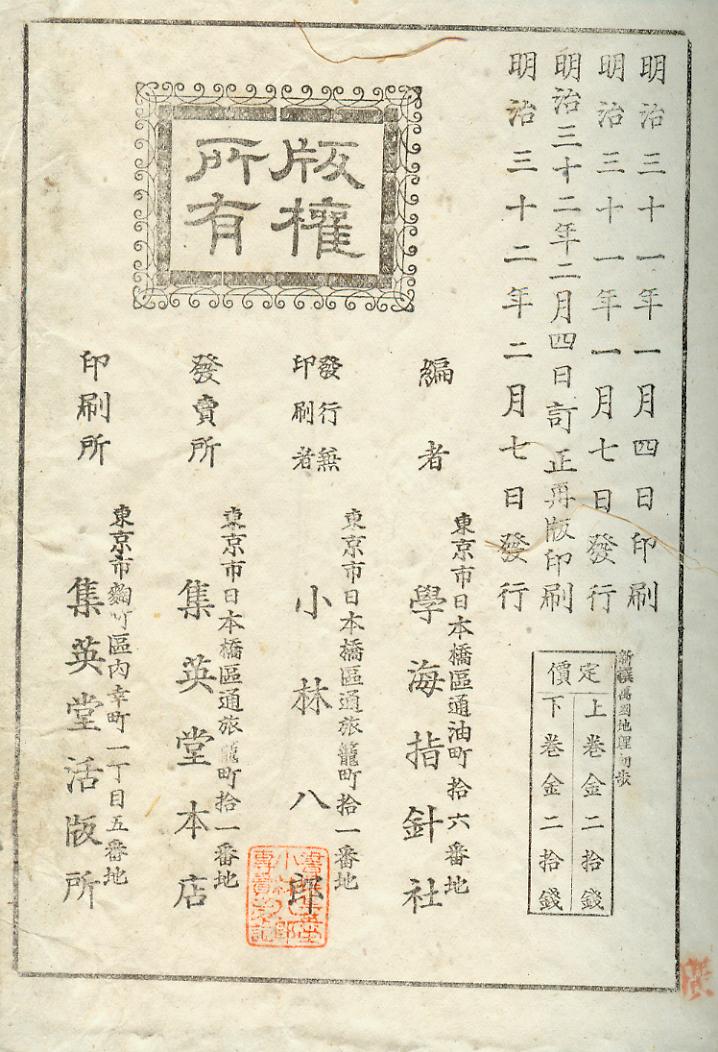 明治三十一年一月四日印刷
明治三十一年一月七日發行
明治三十二年二月四日訂正再版印刷
明治三十二年二月七日發行
新撰萬國地理初歩
定價
上卷金二拾錢
下卷金二拾錢
版權
所有
編者
東京市日本橋區通油町拾六番地
學海指針社
發行兼
印刷者
東京市日本橋區通旅籠町拾一番地
小林八郎
發賣所
東京市日本橋區通旅籠町拾一番地
集英堂本店
印刷所
東京市麴町區内幸町一丁目五番地
集英堂活版所